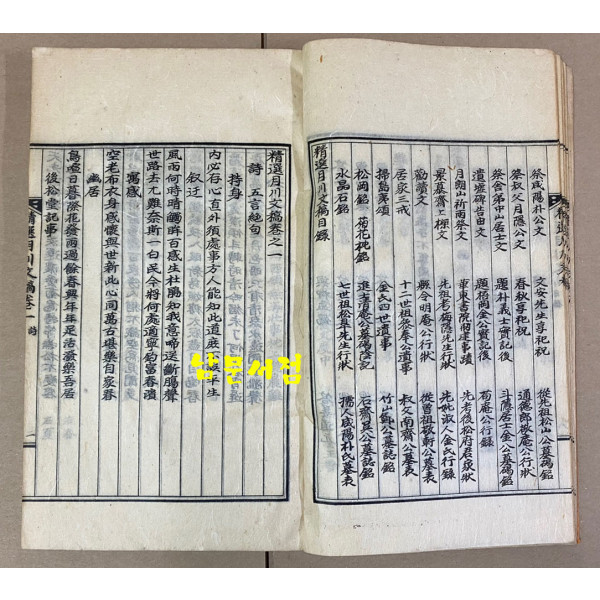 祭咸陽朴公文 文安先生享祀祝 從先祖松山公墓碣銘
祭叔父月隱公文 春秋享祀祝 通德郎敬庵公行狀
祭舍弟中山居士文 題朴義士實記後 斗隱居士金公墓碣銘
遺墟碑告由文 題梧岡金公實記後 菊庵公行錄
月朗山祈雨祭文 華東書院創建事蹟 先考後松府君家狀
景慕齋上樑文 先祖考隱先生行狀 先妣淑人金氏行錄
勸讀文 縣令明庵公行狀 從曾祖敬軒公墓表
居家三戒 十一世祖參奉公遺事 叔父南齋公墓表
掃島夷頌 金氏四世遺事 竹山鄭公墓誌銘
松岡銘 菊花枕銘 進士清庵公墓碣陰記 石齋吳公墓誌銘
水晶石銘 七世祖松皐先生行狀 孺人咸陽朴氏墓表
精選月川文稿目錄
精選月川文稿卷之一
詩 五言絕句
持身
內必存心直外須處事方人能知此道庶不誤平生
叙迂
風雨何時晴眸百感生杜鵑知我意啼送斷腸聲
世路去尤難奈斯一白民今將何處適寧釣富春濱
寓感
空老布衣身感懷與世新此心同萬古堪樂自家春
幽居
鳥啼日暮際花發雨過餘春興年年足活潑樂吾居
後松堂記事
精選月川文稿卷一 詩
남문서점